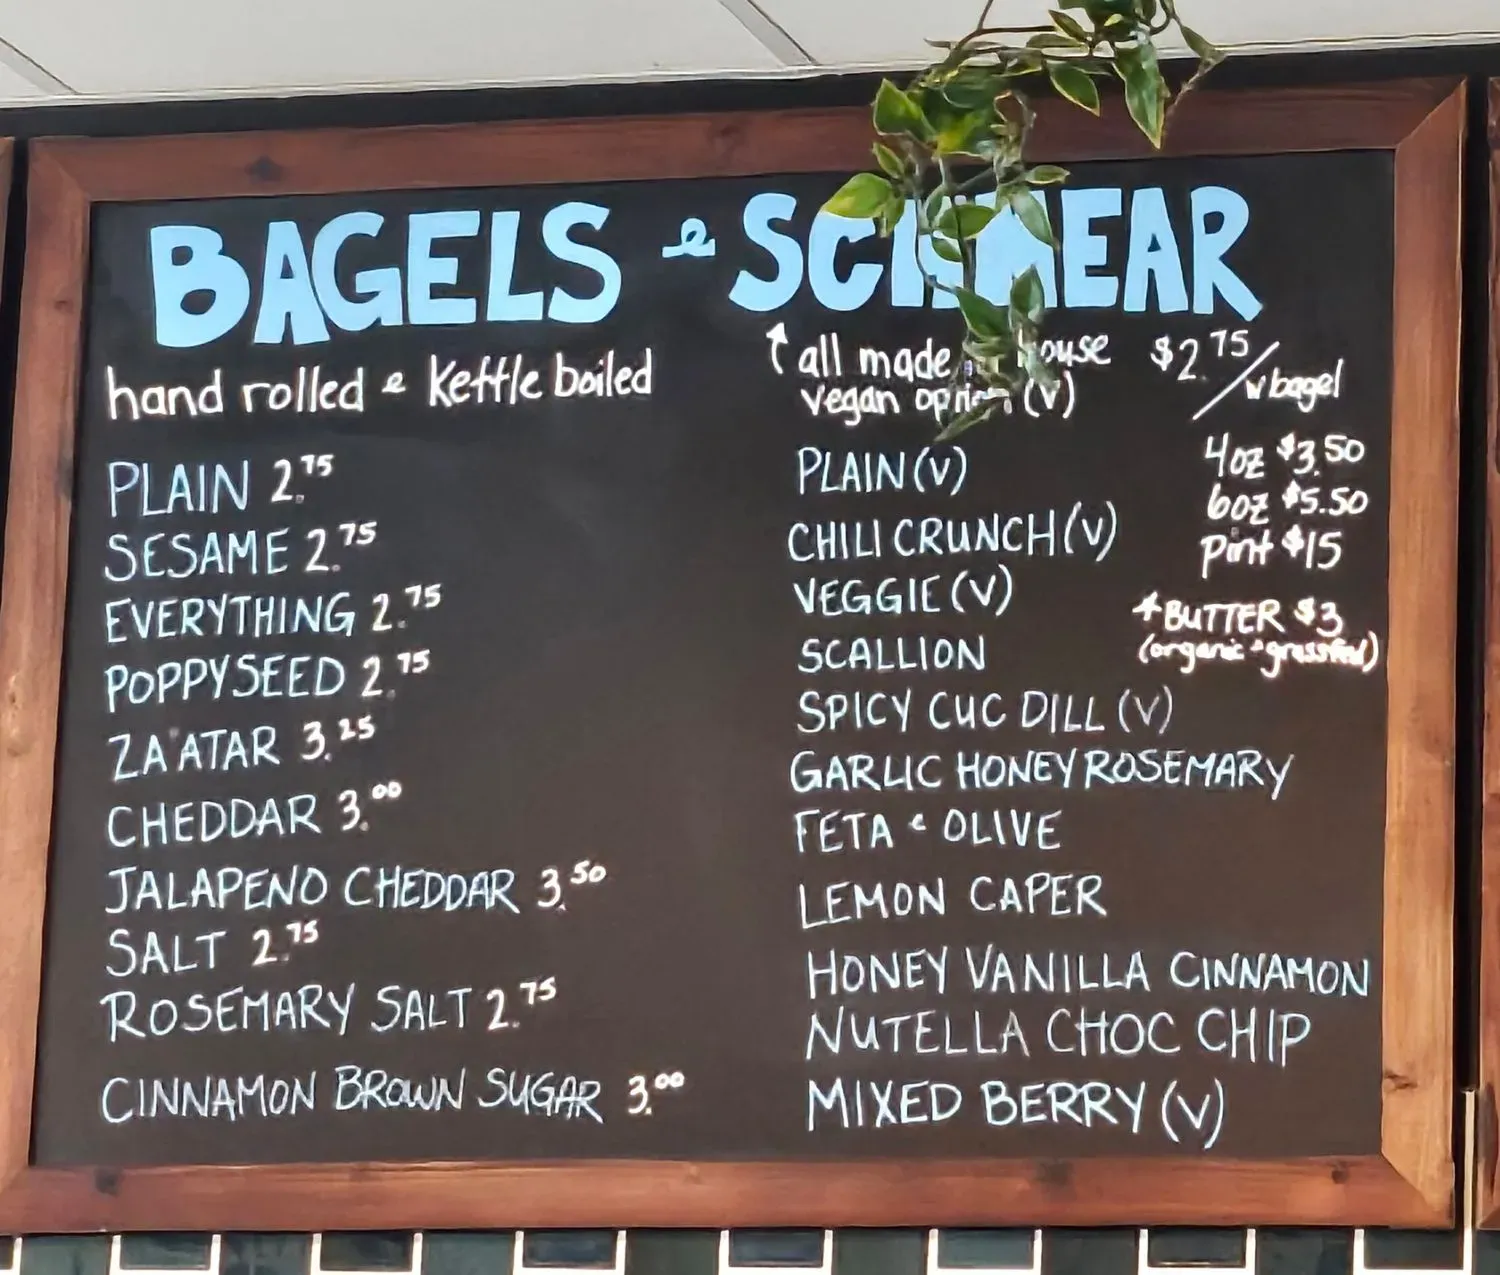 BAGELS & SCHMEAR
hand rolled & Kettle boiled
PLAIN 2.75
SESAME 2.75
EVERYTHING 2.75
POPPYSEED 2.75
ZA'ATAR 3.25
CHEDDAR 3.00
JALAPENO CHEDDAR 3.50
SALT 2.75
ROSEMARY SALT 2.75
CINNAMON BROWN SUGAR 3.00
↑ all made in house
vegan option (v)
$2.75/w bagel
4oz $3.50
6oz $5.50
pint $15
+BUTTER $3
(organic & grassfed)
PLAIN (V)
CHILI CRUNCH (V)
VEGGIE (V)
SCALLION
SPICY CUC DILL (V)
GARLIC HONEY ROSEMARY
FETA & OLIVE
LEMON CAPER
HONEY VANILLA CINNAMON
NUTELLA CHOC CHIP
MIXED BERRY (V)